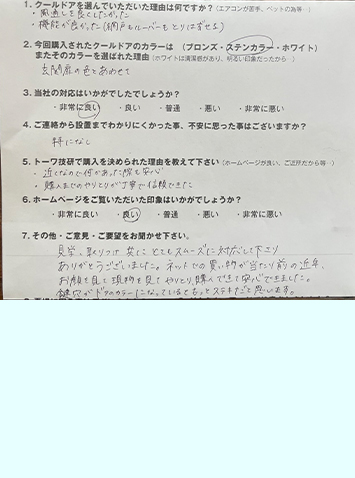 1. クールドアを選んでいただいた理由は何ですか？（エアコンが苦手、ペットの為等…）
・風通しを良くしたかった
・機能が良かった（網戸もルーバーもとりはずせる）
2. 今回購入されたクールドアのカラーは （ブロンズ・ステンカラー・ホワイト）
またそのカラーを選ばれた理由（ホワイトは清潔感があり、明るい印象だったから…）
玄関扉の色とあわせて
3. 当社の対応はいかがでしたでしょうか？
・非常に良い ・良い ・普通 ・悪い ・非常に悪い
4. ご連絡から設置までわかりにくかった事、不安に思った事はございますか？
特になし
5. トーワ技研で購入を決められた理由を教えて下さい（ホームページが良い、ご近所だから等…）
・近くなので何かあった際も安心
・購入までのやりとりが丁寧で信頼できた
6. ホームページをご覧いただいた印象はいかがでしょうか？
・非常に良い ・良い ・普通 ・悪い ・非常に悪い
7. その他・ご意見・ご要望をお聞かせ下さい。
見学、取りつけ 共に とてもスムーズに対応して下さり
ありがとうございました。ネットでの買い物が当たり前の近年、
お顔を見て 現物を見て やりとり、購入できて安心できました。
鍵穴がドアのカラーになっているともっとステキだと思います。